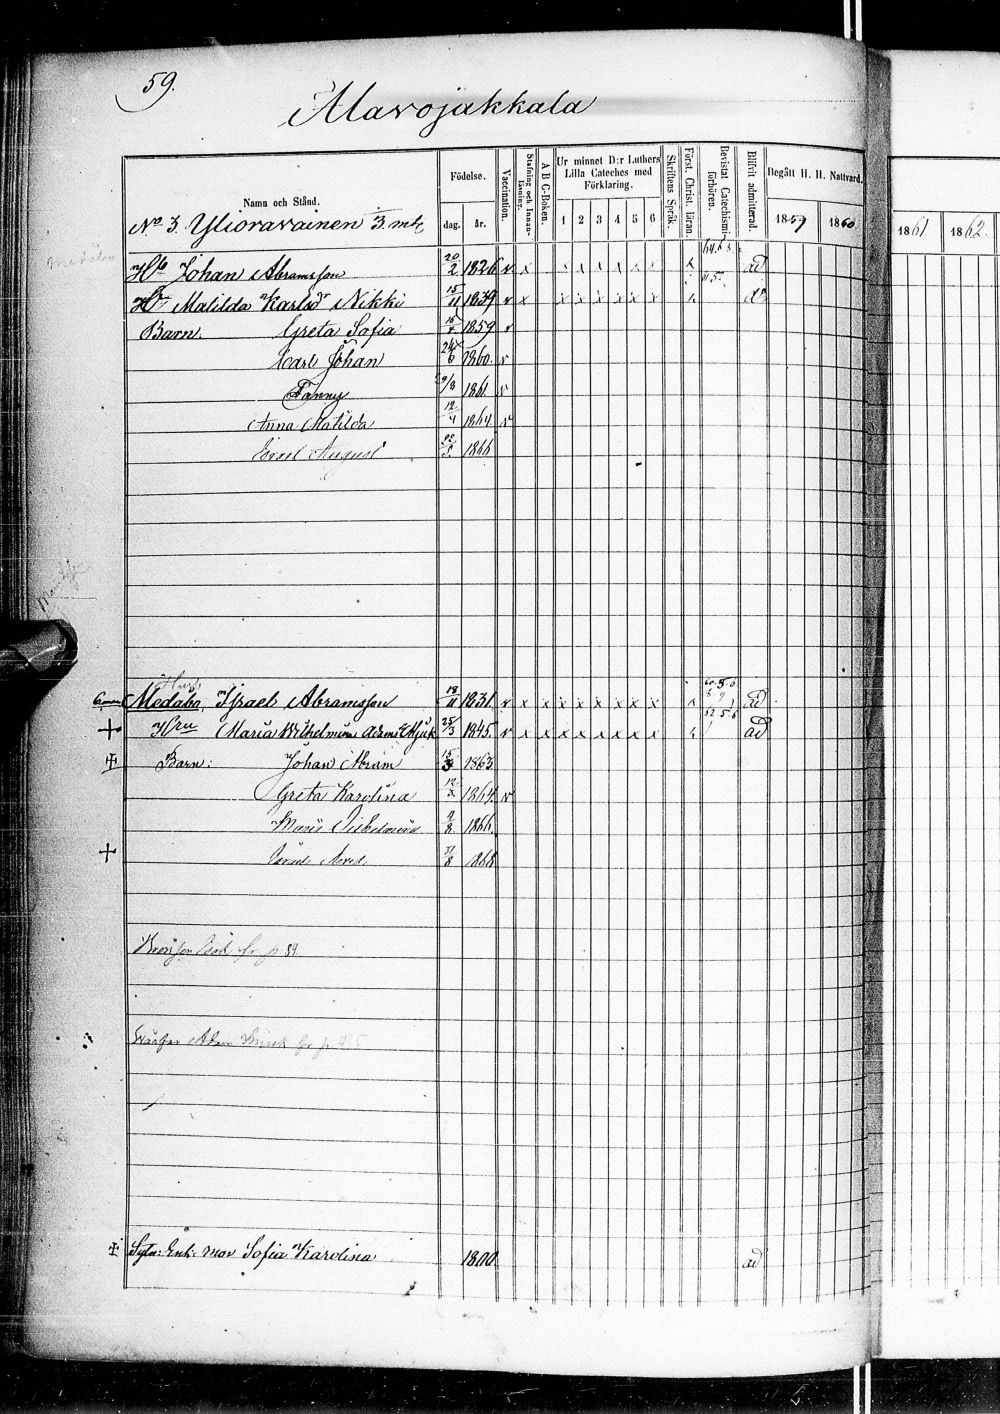 59.
Alavojakkala
Namn och Stånd.
Födelse.
dag. år.
Vaccination.
Stafning och Innanläsning.
A B C-Boken.
Ur minnet D:r Luthers Lilla Cateches med Förklaring.
1 2 3 4 5 6
Skriftens Språk.
Först. Christ. läran.
Bevistat Catechismiförhören.
Blifvit admitterad.
Begått H. H. Nattvard.
1859 1860 1861 1862
No 3. Ylioravainen 3 mtl
Johan Abramsson 20/2 1826 v x x x x x x x x ad
Matilda Karlsd Nikki 15/11 1839 v x x x x x x x
Barn. Greta Sofia 1859 v
Carl Johan 24/6 1860. v
Fanny 9/8 1861. v
Anna Matilda 12/4 1864 v
Israel August 1866
Medabo, Israel Abramsson 18/11 1831. v x x x x x x x x ad
Hru Maria Wilhelmina 25/3 1845. v x x x x x x x ad
Barn: Johan Abram 1863
Greta Karolina 1864. v
Maria Vilhelmina 2/8 1866.
1868
fr p 89.
Adam fr p
mor Sofia Karolina 1800 ad